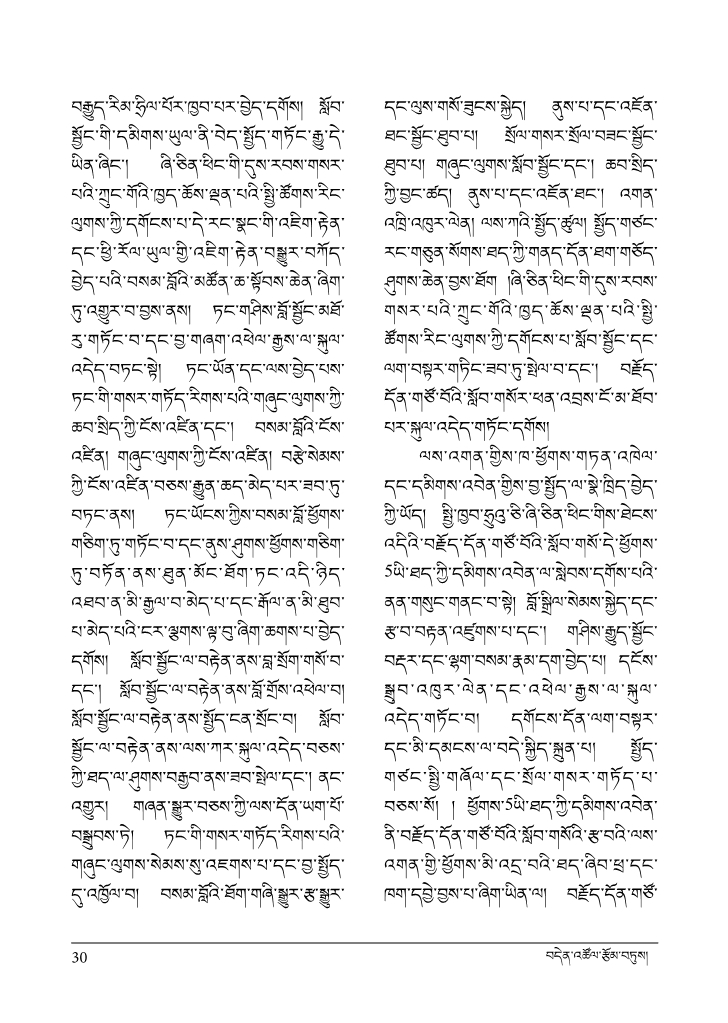 བརྒྱུད་རིམ་ཧྲིལ་པོར་ཁྱབ་པར་བྱེད་དགོས། སློབ་
སྦྱོང་གི་དམིགས་ཡུལ་ནི་བེད་སྤྱོད་གཏོང་རྒྱུ་དེ་
ཡིན་ཞིང་། ཞི་ཅིན་ཕིང་གི་དུས་རབས་གསར་
པའི་ཀྲུང་གོའི་ཁྱད་ཆོས་ལྡན་པའི་སྤྱི་ཚོགས་རིང་
ལུགས་ཀྱི་དགོངས་པ་དེ་རང་སྣང་གི་འཇིག་རྟེན་
དང་ཕྱི་རོལ་ཡུལ་གྱི་འཇིག་རྟེན་བསྒྱུར་བཀོད་
བྱེད་པའི་བསམ་བློའི་མཚོན་ཆ་སྟོབས་ཆེན་ཞིག་
ཏུ་འགྱུར་བ་བྱས་ནས། ཏང་གཤིས་བློ་སྦྱོང་མཐོ་
རུ་གཏོང་བ་དང་བྱ་གཞག་འཕེལ་རྒྱས་ལ་སྐུལ་
འདེད་བཏང་སྟེ། ཏང་ཡོན་དང་ལས་བྱེད་པས་
ཏང་གི་གསར་གཏོད་རིགས་པའི་གཞུང་ལུགས་ཀྱི་
ཆབ་སྲིད་ཀྱི་ངོས་འཛིན་དང་། བསམ་བློའི་ངོས་
འཛིན། གཞུང་ལུགས་ཀྱི་ངོས་འཛིན། བརྩེ་སེམས་
ཀྱི་ངོས་འཛིན་བཅས་རྒྱུན་ཆད་མེད་པར་ཟབ་ཏུ་
བཏང་ནས། ཏང་ཡོངས་ཀྱིས་བསམ་བློ་ཕྱོགས་
གཅིག་ཏུ་གཏོང་བ་དང་ནུས་ཤུགས་ཕྱོགས་གཅིག་
ཏུ་བཏོན་ནས་ཐུན་མོང་ཐོག་ཏང་འདི་ཉིད་
འཐབ་ན་མི་རྒྱལ་བ་མེད་པ་དང་རྒོལ་ན་མི་ཐུབ་
པ་མེད་པའི་ངར་ལྕགས་ལྟ་བུ་ཞིག་ཆགས་པ་བྱེད་
དགོས། སློབ་སྦྱོང་ལ་བརྟེན་ནས་བླ་སྲོག་གསོ་བ་
དང་། སློབ་སྦྱོང་ལ་བརྟེན་ནས་བློ་གྲོས་འཕེལ་བ།
སློབ་སྦྱོང་ལ་བརྟེན་ནས་སྤྱོད་ངན་སྲོང་བ། སློབ་
སྦྱོང་ལ་བརྟེན་ནས་ལས་ཀར་སྐུལ་འདེད་བཅས་
ཀྱི་ཐད་ལ་ཤུགས་བརྒྱབ་ནས་ཟབ་སྤེལ་དང་། ནང་
འགྱུར། གཞན་སྒྱུར་བཅས་ཀྱི་ལས་དོན་ཡག་པོ་
བསྒྲུབས་ཏེ། ཏང་གི་གསར་གཏོད་རིགས་པའི་
གཞུང་ལུགས་སེམས་སུ་འཇགས་པ་དང་བྱ་སྤྱོད་
དུ་འཁྱོལ་བ། བསམ་བློའི་ཐོག་གཞི་སྒྱུར་རྩ་སྒྱུར་
དང་ལུས་གསོ་ཟུངས་སྐྱེད། ནུས་པ་དང་འཇོན་
ཐང་སྦྱོང་ཐུབ་པ། སྲོལ་གསར་སྲོལ་བཟང་སྦྱོང་
ཐུབ་པ། གཞུང་ལུགས་སློབ་སྦྱོང་དང་། ཆབ་སྲིད་
ཀྱི་བྱང་ཚད། ནུས་པ་དང་འཇོན་ཐང་། འགན་
འཁྲི་འཁུར་ལེན། ལས་ཀའི་སྤྱོད་ཚུལ། སྤྱོད་གཙང་
རང་གཅུན་སོགས་ཐད་ཀྱི་གནད་དོན་ཐག་གཅོད་
ཤུགས་ཆེན་བྱས་ཐོག །ཞི་ཅིན་ཕིང་གི་དུས་རབས་
གསར་པའི་ཀྲུང་གོའི་ཁྱད་ཆོས་ལྡན་པའི་སྤྱི་
ཚོགས་རིང་ལུགས་ཀྱི་དགོངས་པ་སློབ་སྦྱོང་དང་
ལག་བསྟར་གཏིང་ཟབ་ཏུ་སྤེལ་བ་དང་། བརྗོད་
དོན་གཙོ་བོའི་སློབ་གསོར་ཕན་འབྲས་ངོ་མ་ཐོབ་
པར་སྐུལ་འདེད་གཏོང་དགོས།
ལས་འགན་གྱིས་ཁ་ཕྱོགས་གཏན་འཁེལ་
དང་དམིགས་འབེན་གྱིས་བྱ་སྤྱོད་ལ་སྣེ་ཁྲིད་བྱེད་
ཀྱི་ཡོད། སྤྱི་ཁྱབ་ཧྲུའུ་ཅི་ཞི་ཅིན་ཕིང་གིས་ཐེངས་
འདིའི་བརྗོད་དོན་གཙོ་བོའི་སློབ་གསོ་དེ་ཕྱོགས་
5ཡི་ཐད་ཀྱི་དམིགས་འབེན་ལ་སླེབས་དགོས་པའི་
ནན་གསུང་གནང་བ་སྟེ། བློ་སྒྲིལ་སེམས་སྐྱེད་དང་
རྩ་བ་བརྟན་འཛུགས་པ་དང་། གཤིས་རྒྱུད་སྦྱོང་
བརྡར་དང་ལྷག་བསམ་རྣམ་དག་བྱེད་པ། དངོས་
སྒྲུབ་འཁུར་ལེན་དང་འཕེལ་རྒྱས་ལ་སྐུལ་
འདེད་གཏོང་བ། དགོངས་དོན་ལག་བསྟར་
དང་མི་དམངས་ལ་བདེ་སྐྱིད་སྐྲུན་པ། སྤྱོད་
གཙང་སྤྱི་གཞོལ་དང་སྲོལ་གསར་གཏོད་པ་
བཅས་སོ། ། ཕྱོགས་5ཡི་ཐད་ཀྱི་དམིགས་འབེན་
ནི་བརྗོད་དོན་གཙོ་བོའི་སློབ་གསོའི་རྩ་བའི་ལས་
འགན་གྱི་ཕྱོགས་མི་འདྲ་བའི་ཐད་ཞིབ་ཕྲ་དང་
ཁག་དབྱེ་བྱས་པ་ཞིག་ཡིན་ལ། བརྗོད་དོན་གཙོ་
30
བདེན་འཚོལ་རྩོམ་བཏུས།